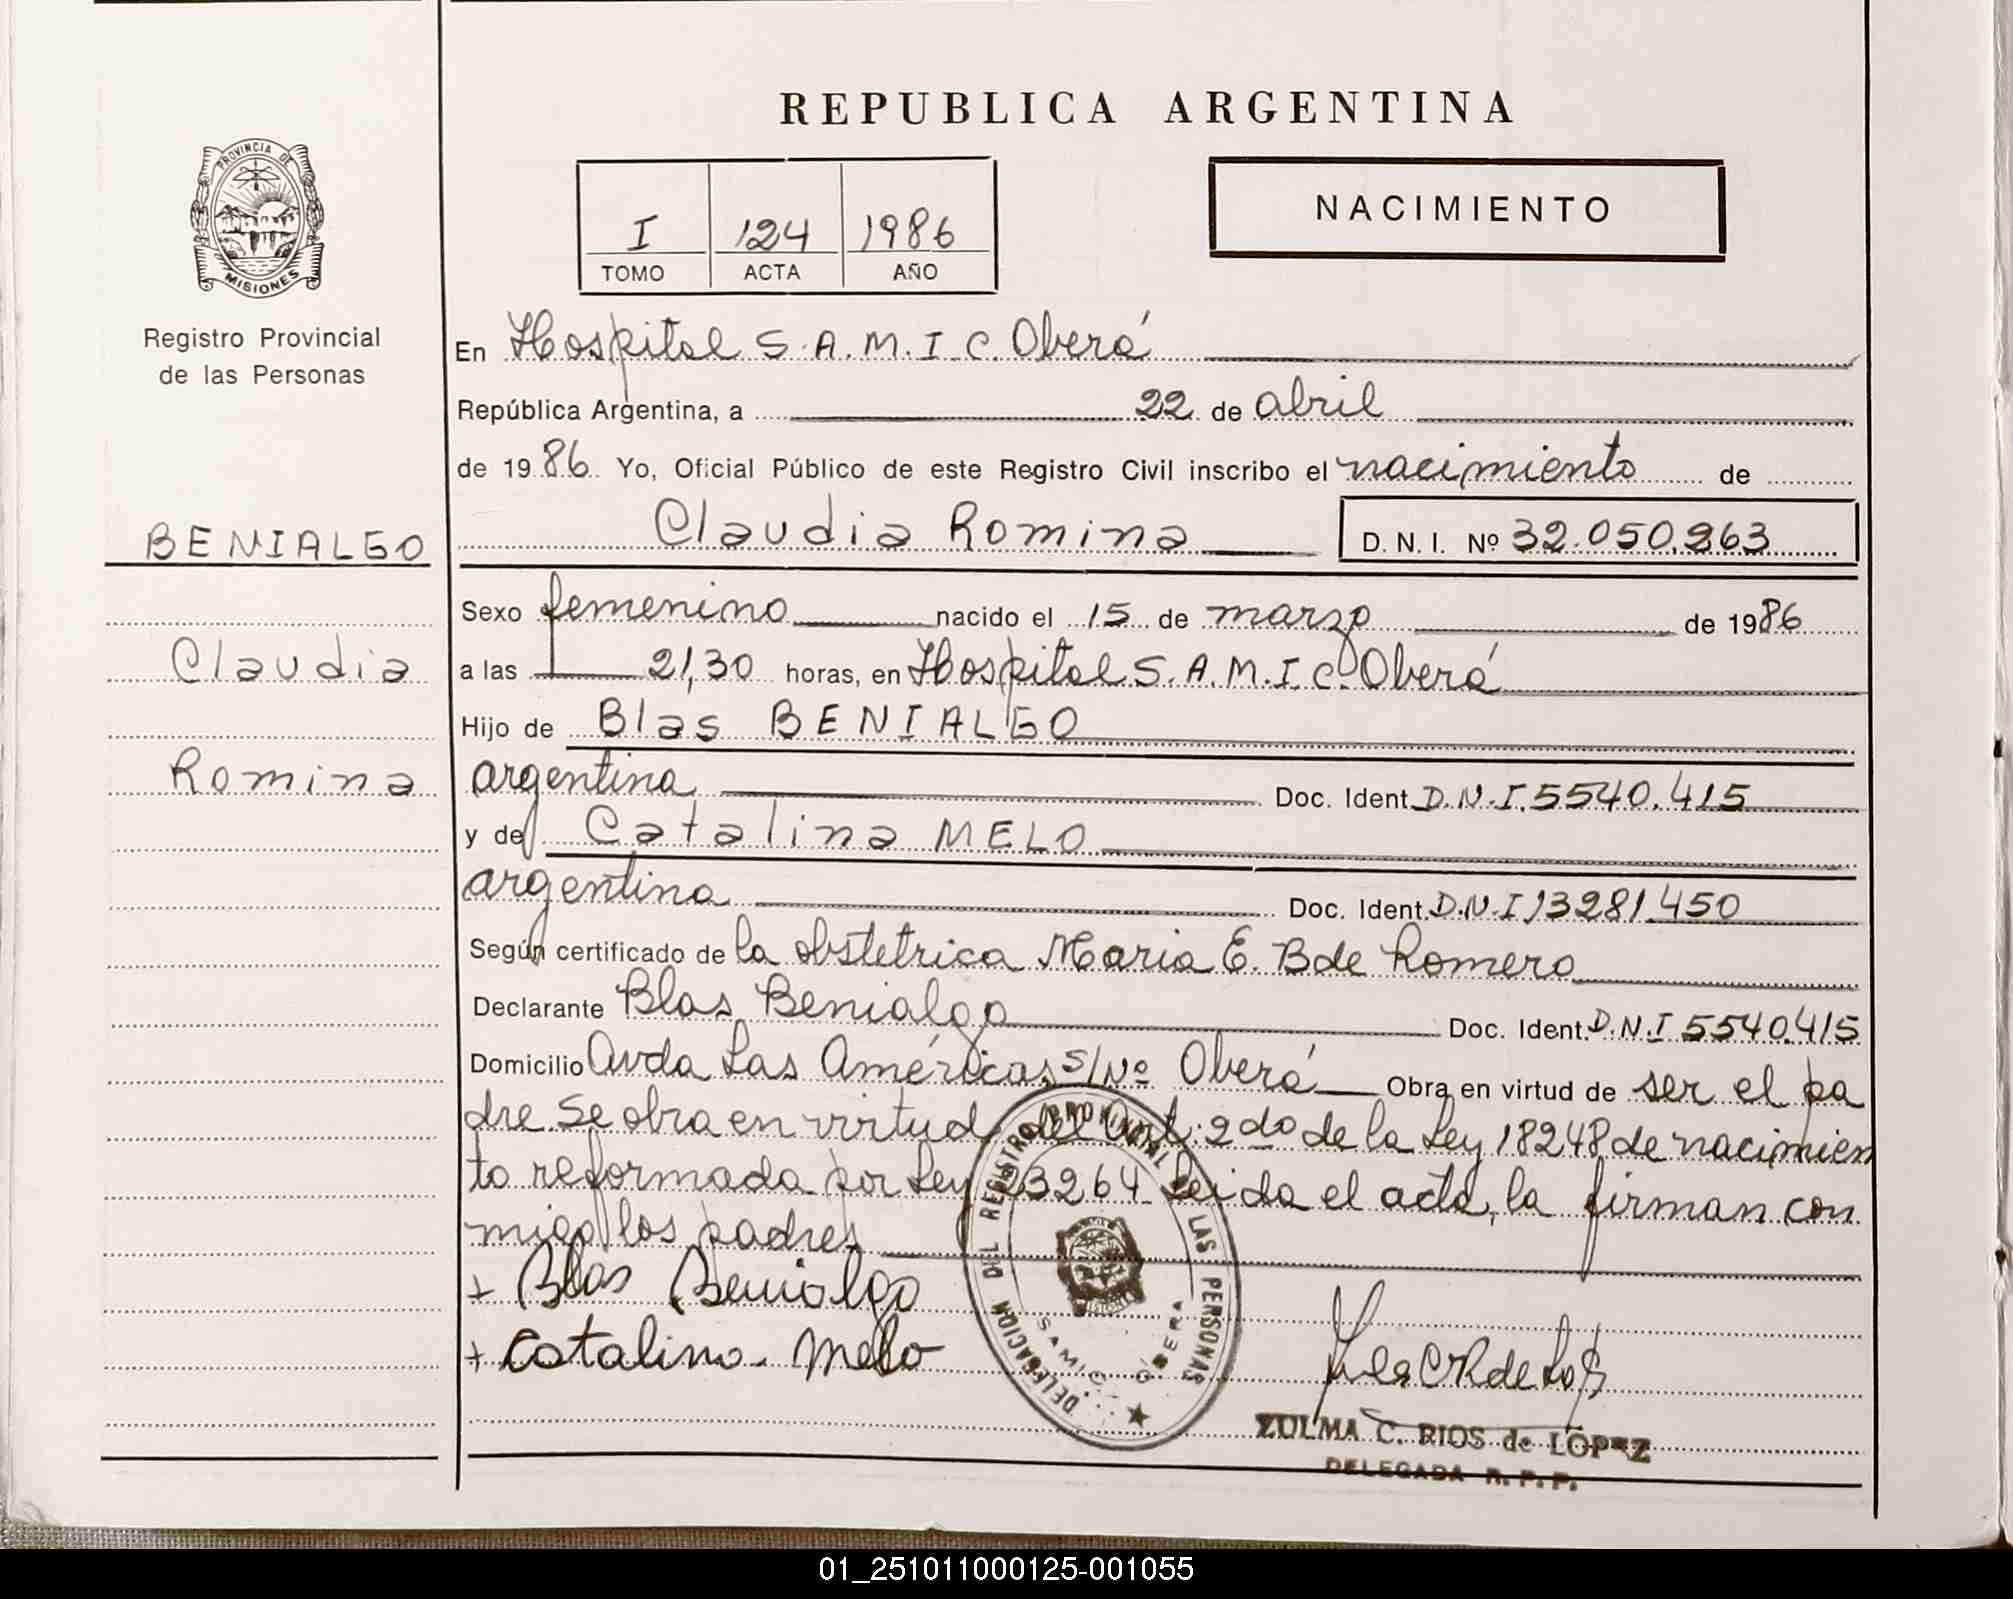 REPUBLICA ARGENTINA
PROVINCIA DE
MISIONES
Registro Provincial
de las Personas
I 124 1986
TOMO ACTA AÑO
NACIMIENTO
En Hospital S.A.M.I.C. Oberá
República Argentina, a 22 de abril
de 1986 Yo, Oficial Público de este Registro Civil inscribo el nacimiento de
BENIALGO
Claudia
Romina
Claudia Romina D.N.I. Nº 32.050.263
Sexo femenino nacido el 15 de marzo de 1986
a las 21,30 horas, en Hospital S.A.M.I.C. Oberá
Hijo de Blas BENIALGO
argentina Doc. Ident. D.N.I. 5540.415
y de Catalina MELO
argentina Doc. Ident. D.N.I 13281450
Según certificado de la obstetrica Maria E. B de Romero
Declarante Blas Benialgo Doc. Ident. D.N.I 5540.415
Domicilio Avda Las Américas s/Nº Oberá Obra en virtud de ser el pa
dre Se obra en virtud del Art. 2do de la Ley 18248 de nacimien
to reformada por Ley 23264 Leida el acta, la firman con
migo los padres
+ Blas Benialgo
+ Catalina Melo
DELEGACION DEL REGISTRO PROVINCIAL LAS PERSONAS
SAMIC OBERA
ZULMA C. RIOS de LOPEZ
DELEGADA R. P. P.
01_251011000125-001055